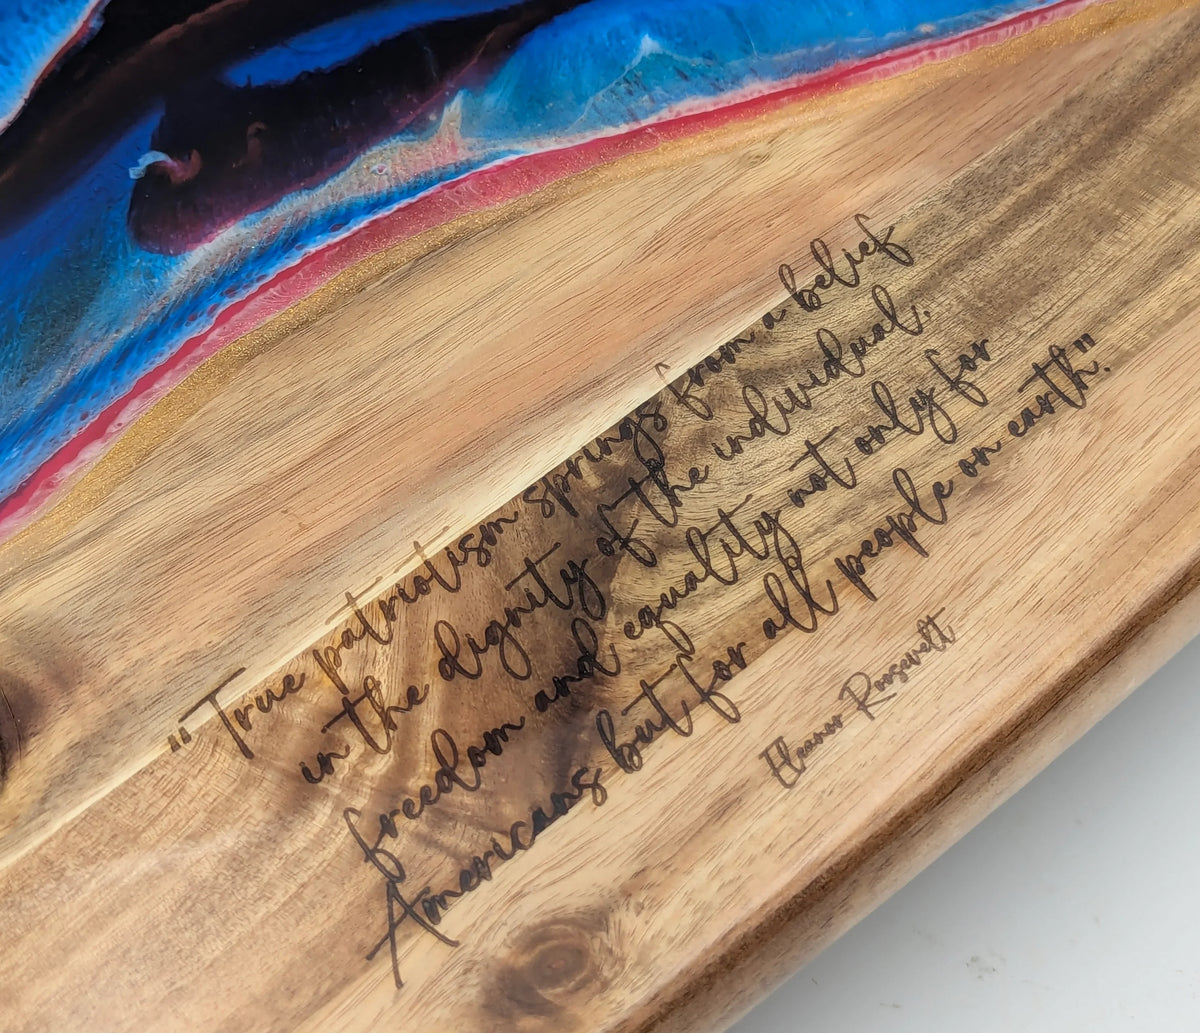 "True patriotism springs from a belief
in the dignity of the individual.
freedom and equality not only for
Americans but for all people on earth."
Eleanor Roosevelt